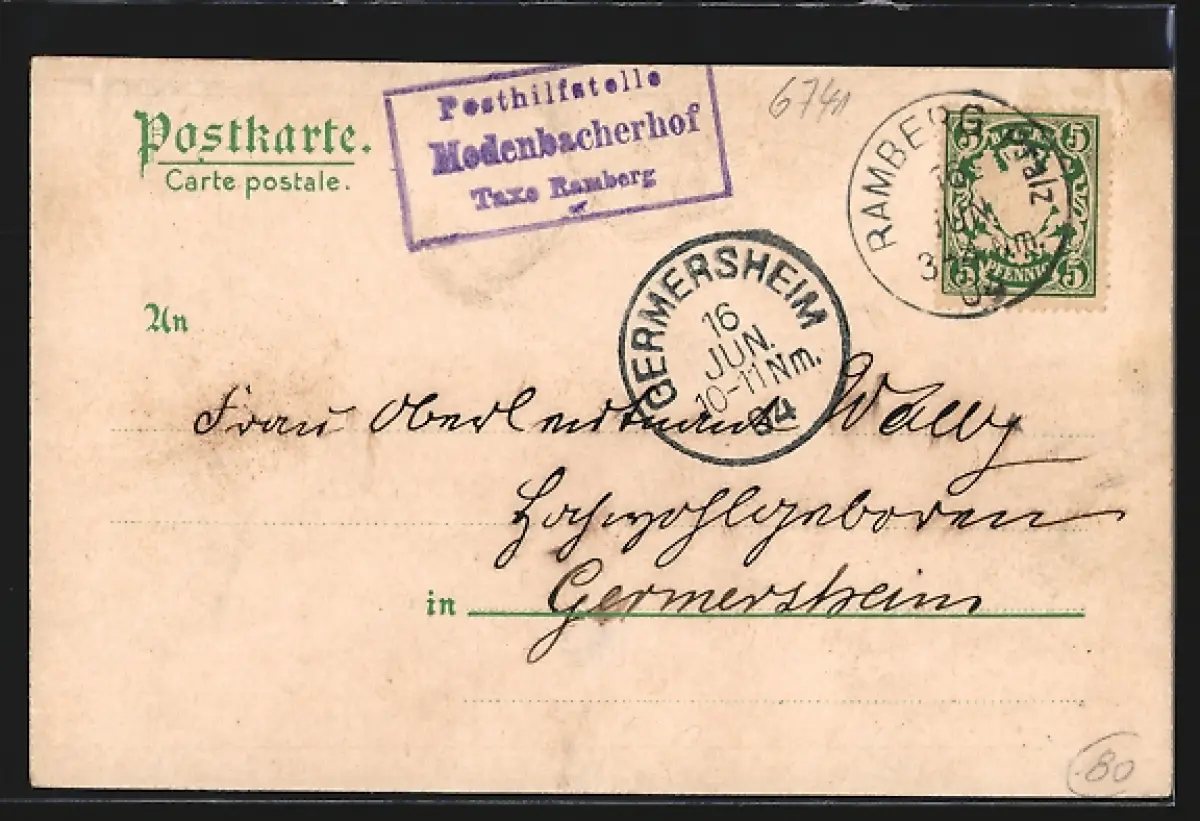 Postkarte.
Carte postale.
Posthilfstelle
Modenbacherhof
Taxe Ramberg
6741
RAMBERG Pfalz
16
JUN.
3-4 Nm.
04
5 5
PFENNIG
5 5
GERMERSHEIM
16
JUN.
10-11 Nm.
04
An
Frau Oberleutnant
Hochwohlgeboren
in Germersheim
80